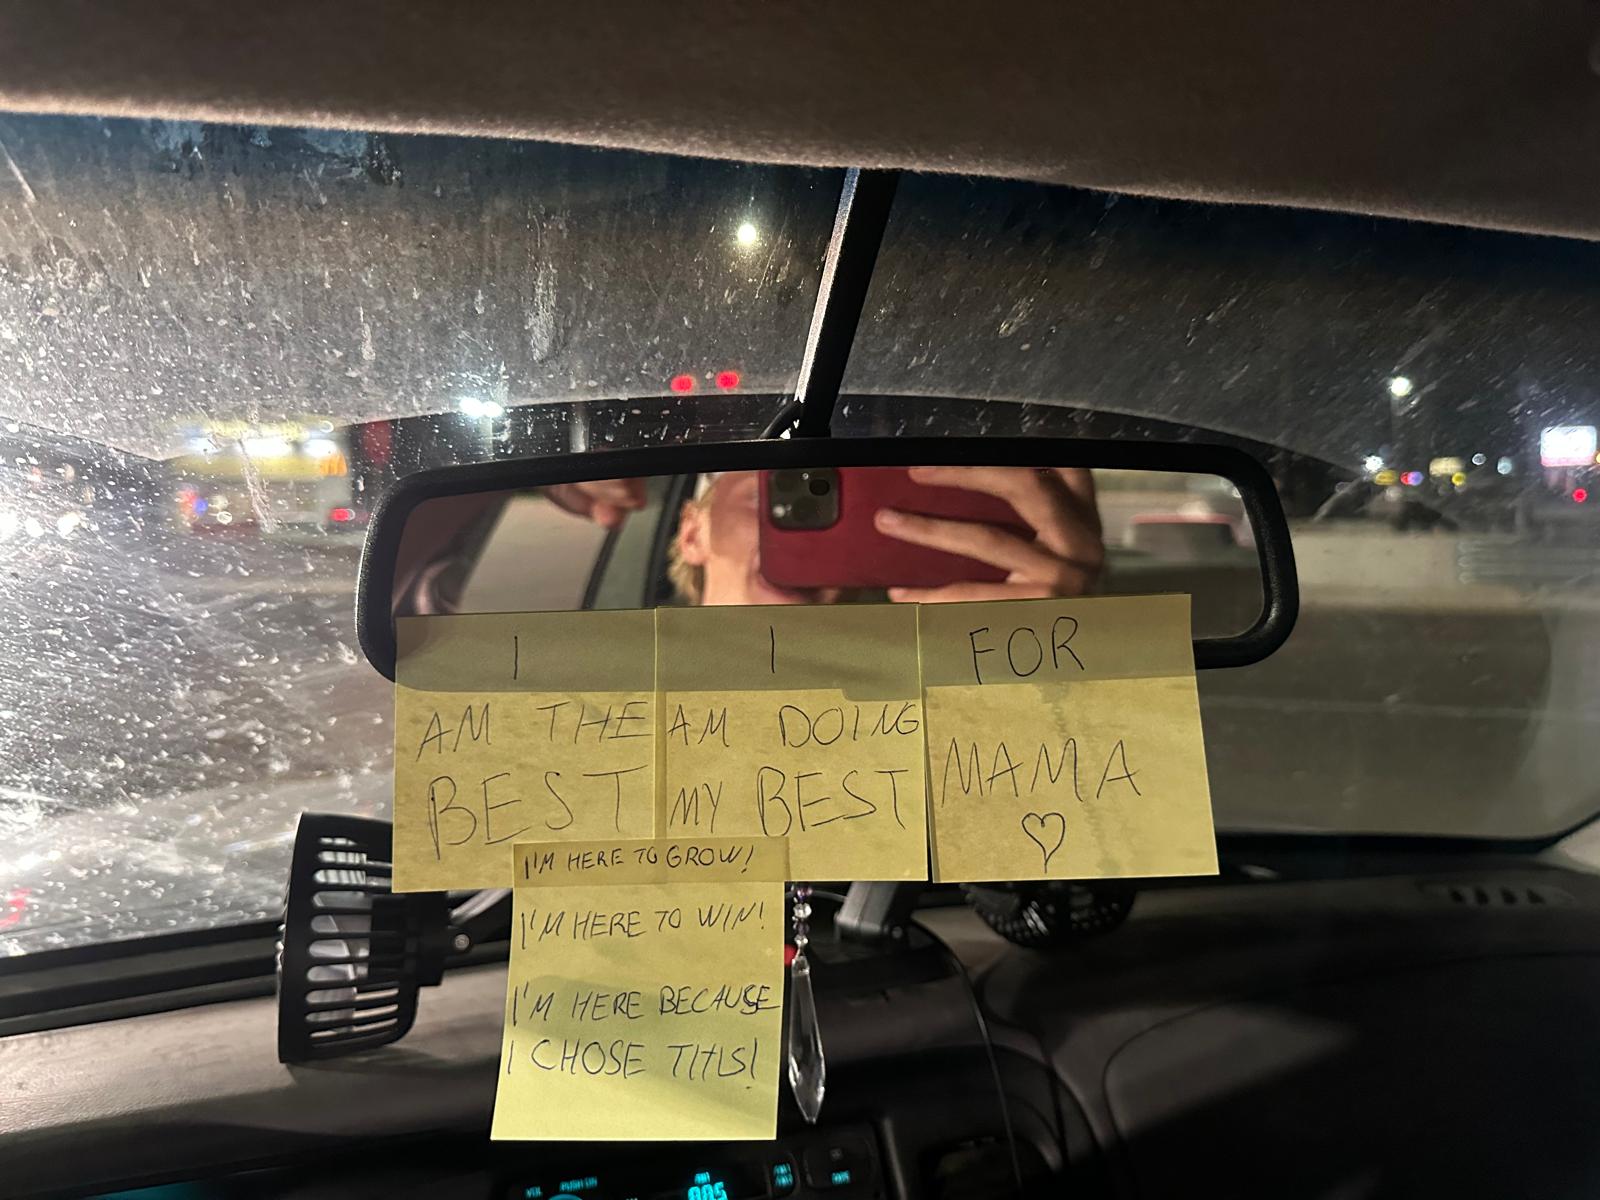 I
AM THE
BEST
I
AM DOING
MY BEST
FOR
MAMA
I'M HERE TO GROW!
I'M HERE TO WIN!
I'M HERE BECAUSE
I CHOSE THIS!
VOL PUSH ON